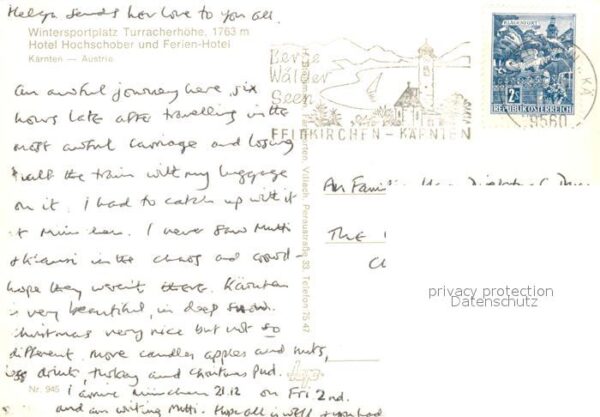 Helga sends her love to you all.
Wintersportplatz Turracherhöhe, 1763 m
Hotel Hochschober und Ferien-Hotel
Kärnten — Austria
An awful journey here, six
hours late after travelling in the
most awful carriage and losing
half the train with my luggage
on it. I had to catch up with it
at München. I never saw Mutti
in the chaos and crowd-
hope they weren't there. Kärnten
is very beautiful, in deep snow.
Christmas very nice but not so
different, more candles apples and nuts,
egg drink, turkey and Christmas Pud.
I arrive München 21.12 on Fri 2nd.
and am writing Mutti. Hope all is well
Nr. 945
Berge
Wälder
Seen
FELDKIRCHEN - KÄRNTEN
KLAGENFURT
2S
REPUBLIK ÖSTERREICH
9560
Villach, Peraustraße 33, Telefon 75 47
An Familie
THE
privacy protection
Datenschutz